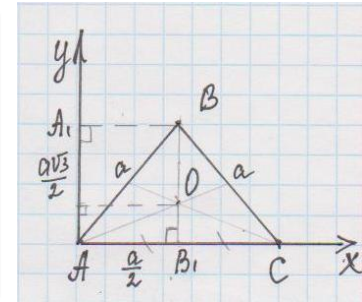 y
B
A₁
a√3/2
a
a
O
A
a/2
B₁
C
x